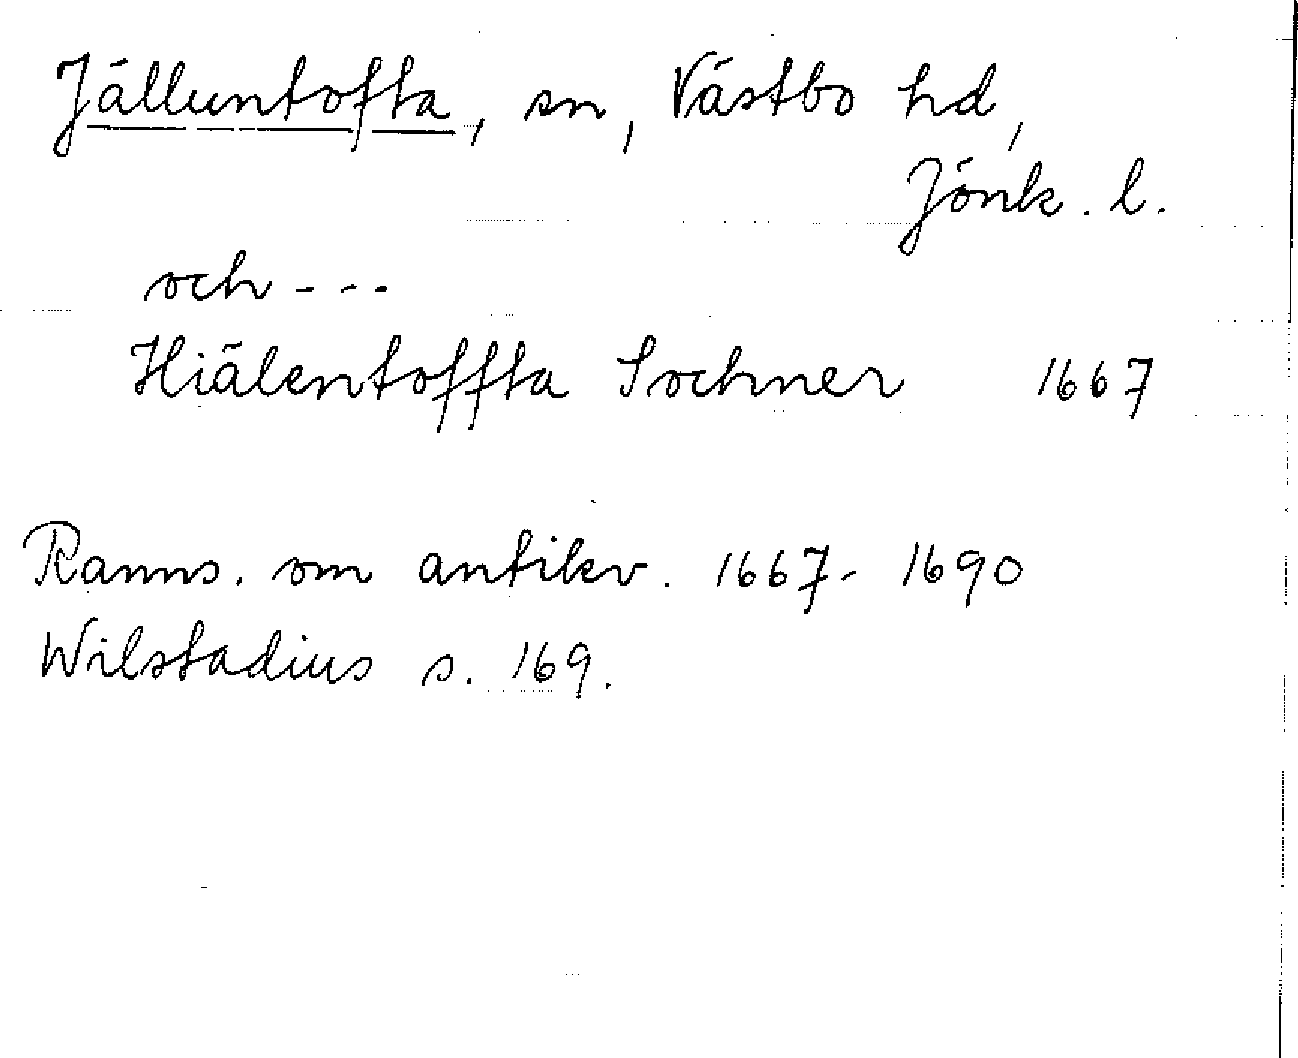 Jälluntofta, sn, Västbo hd,
Jönk. l.
och - - -
Hiälentoffta Sochner 1667
Ranns. om antikv. 1667 - 1690
Wilstadius s. 169.